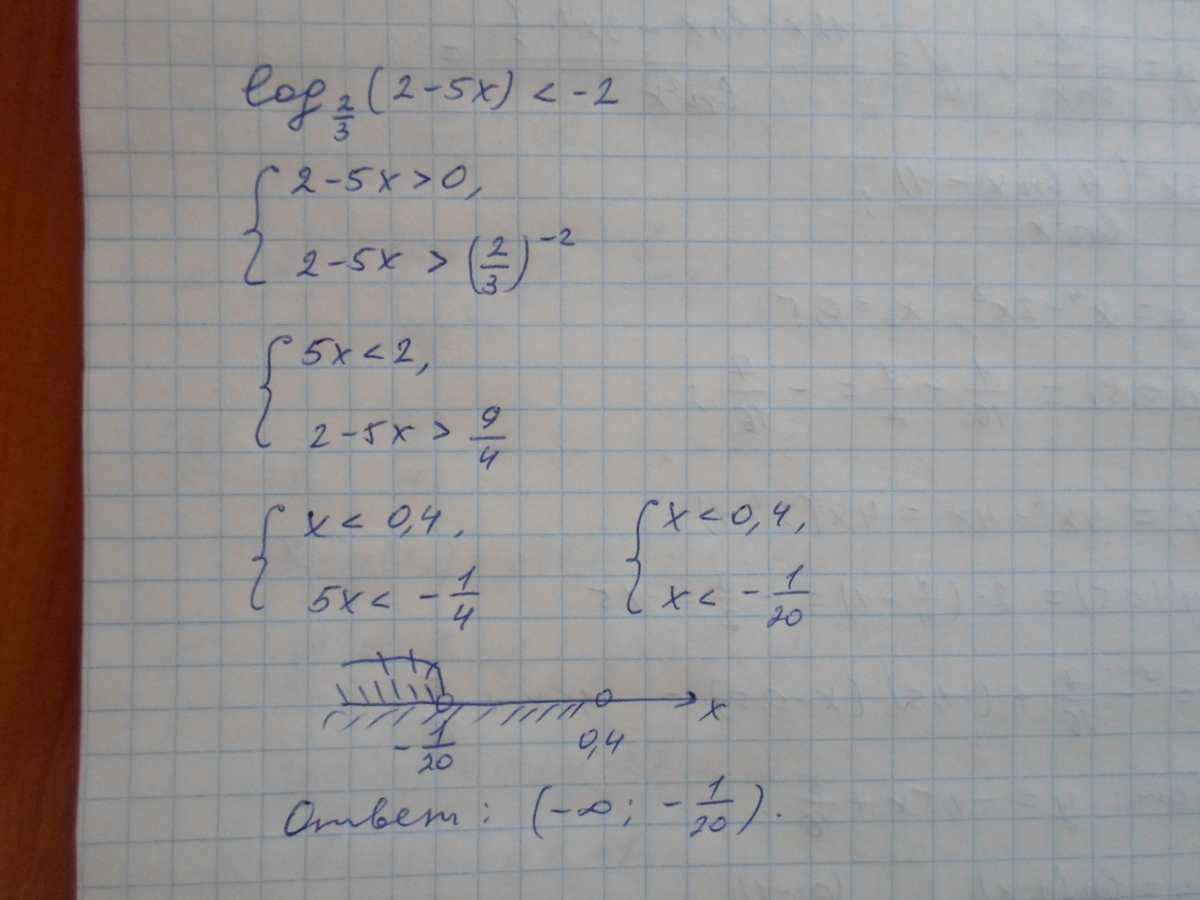 log_{2/3} (2-5x) < -2
{ 2-5x > 0,
2-5x > (2/3)^{-2}
{ 5x < 2,
2-5x > 9/4
{ x < 0,4, { x < 0,4,
5x < -1/4 x < -1/20
x
-1/20 0,4
Ответ: (-∞; -1/20).